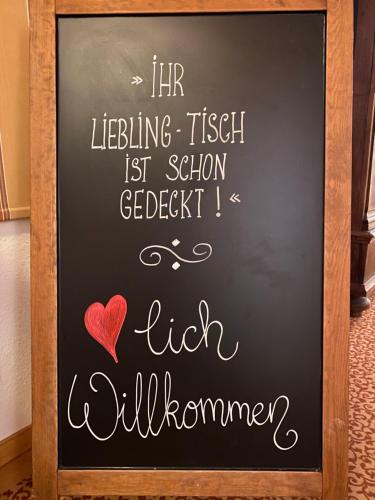 » İHR
LİEBLİNG - TİSCH
İST SCHON
GEDECKT ! «
lich
Willkommen